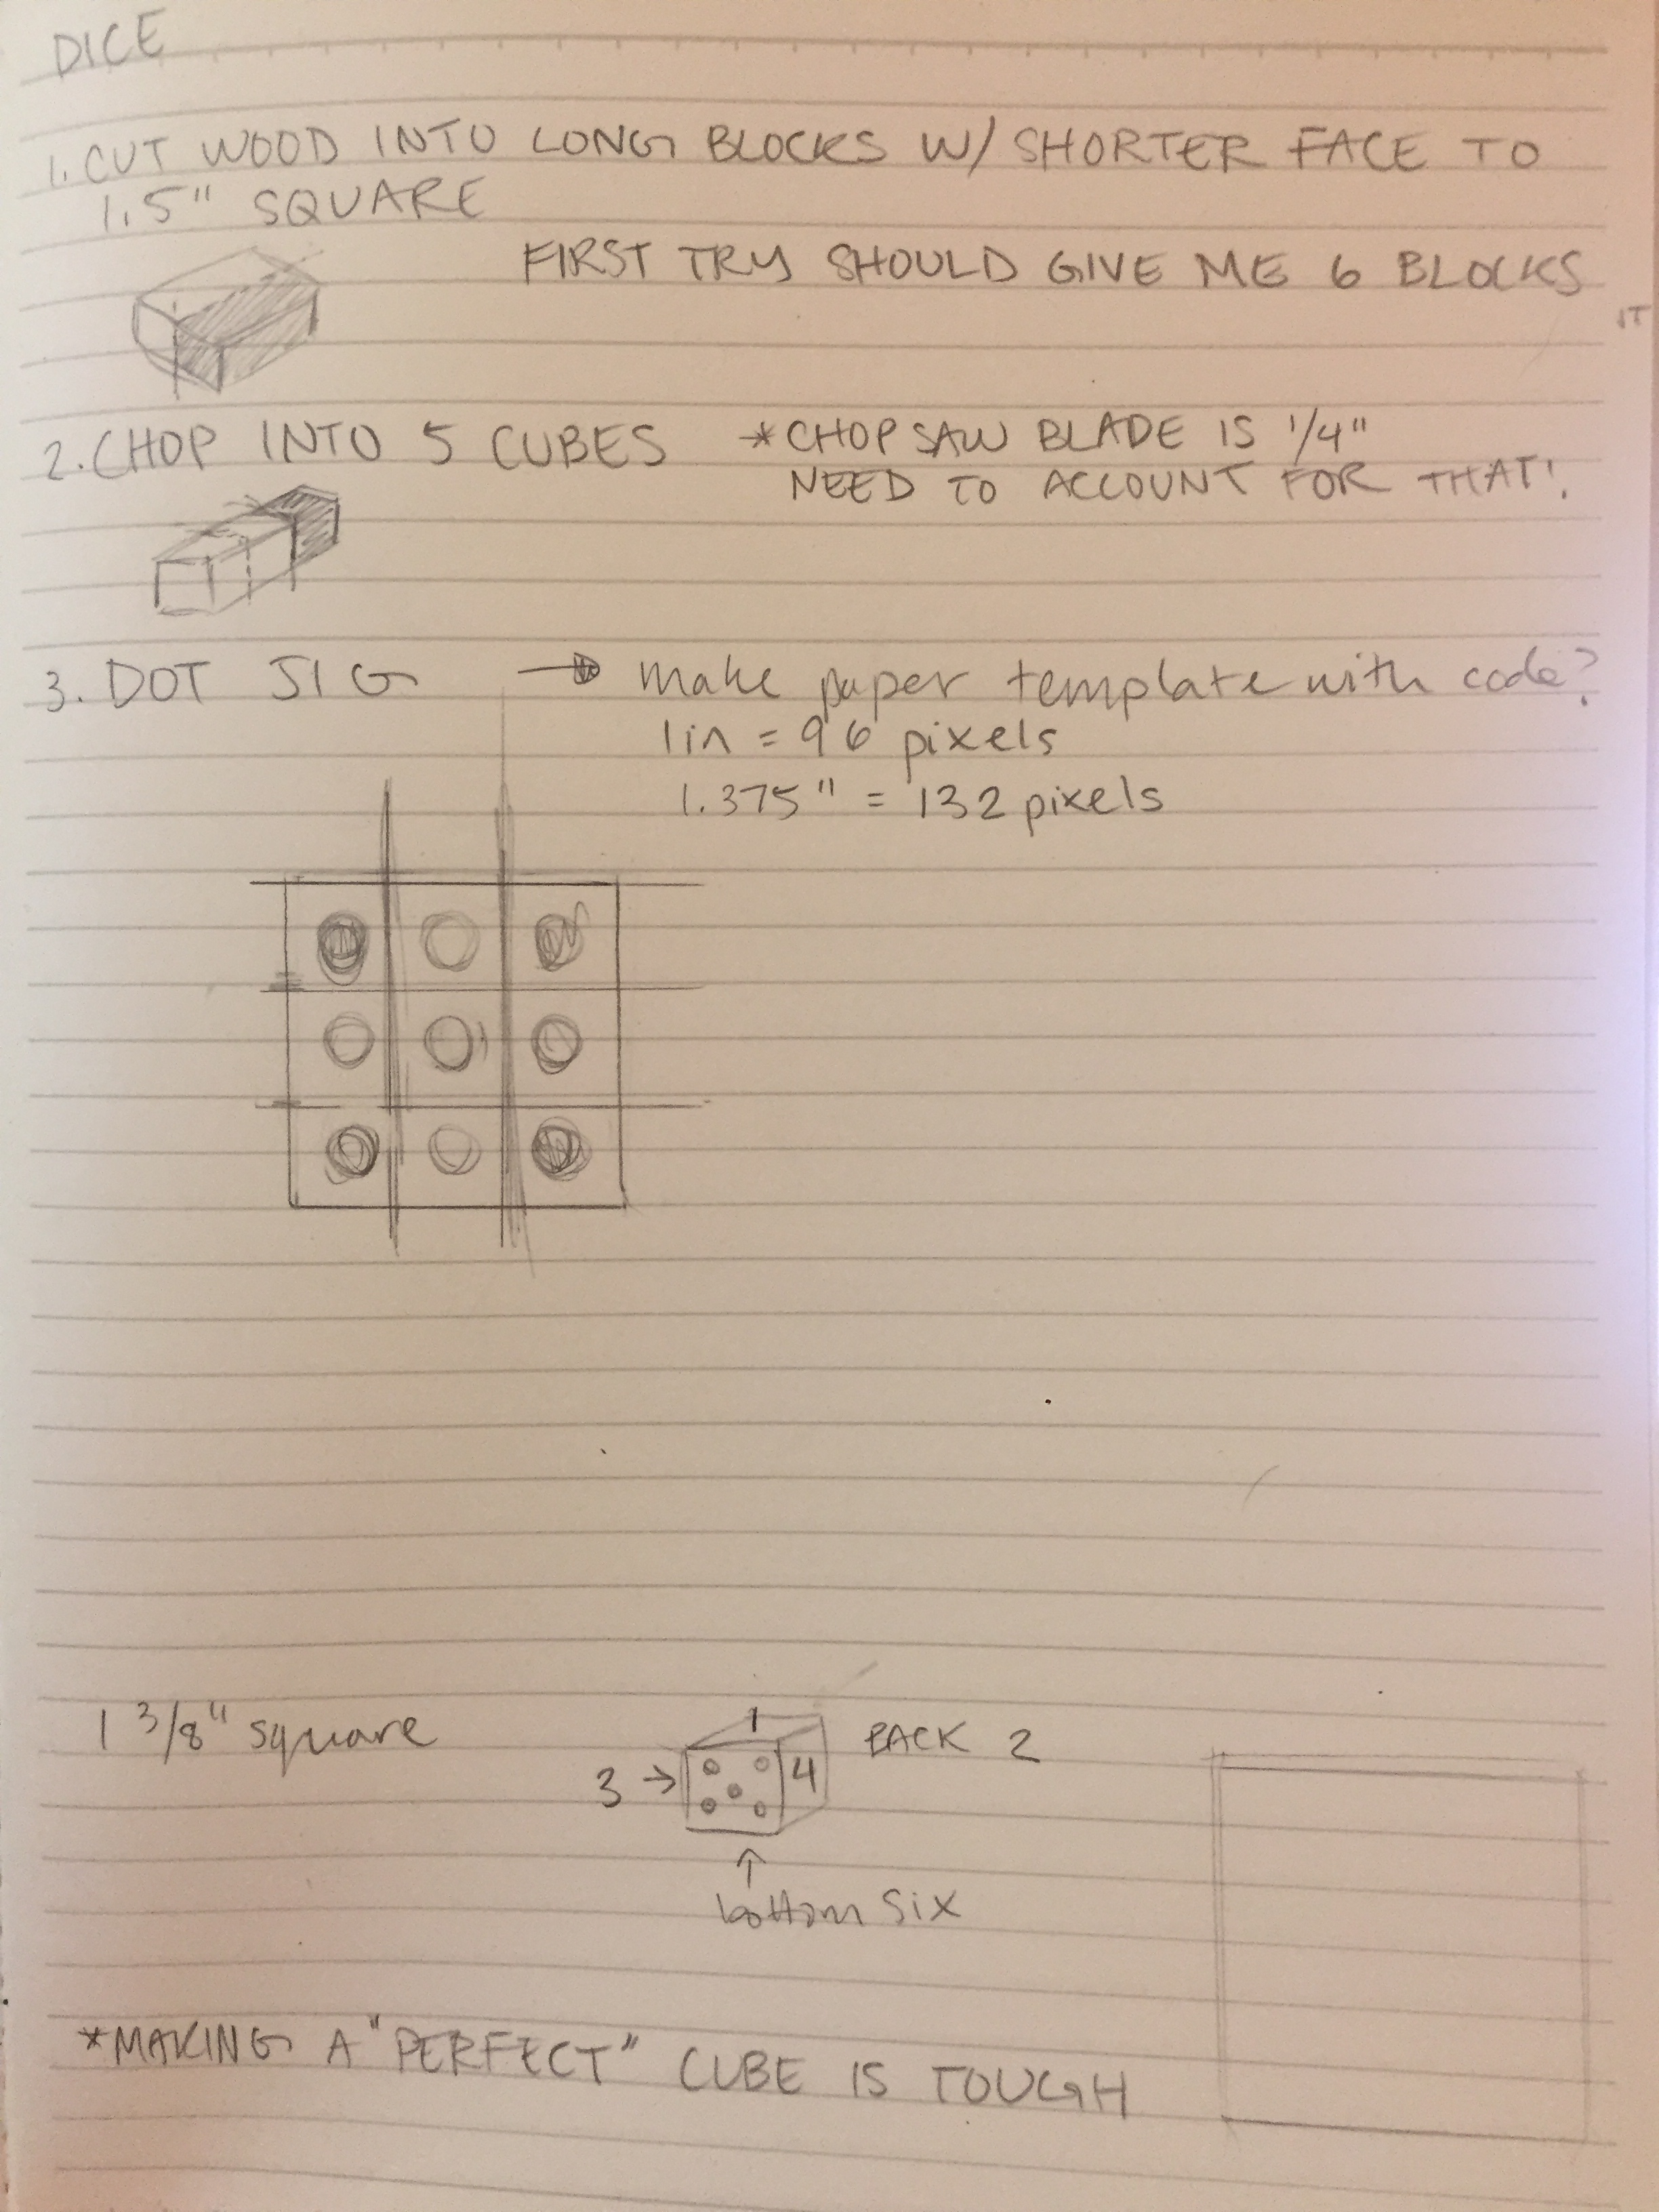 DICE
1. CUT WOOD INTO LONG BLOCKS W/ SHORTER FACE TO
1.5" SQUARE
FIRST TRY SHOULD GIVE ME 6 BLOCKS
IT
2. CHOP INTO 5 CUBES
*CHOP SAW BLADE IS 1/4"
NEED TO ACCOUNT FOR THAT!
3. DOT JIG → make paper template with code?
1in = 96 pixels
1.375" = 132 pixels
1 3/8" square
1
3 →
4
BACK 2
↑
bottom six
*MAKING A "PERFECT" CUBE IS TOUGH